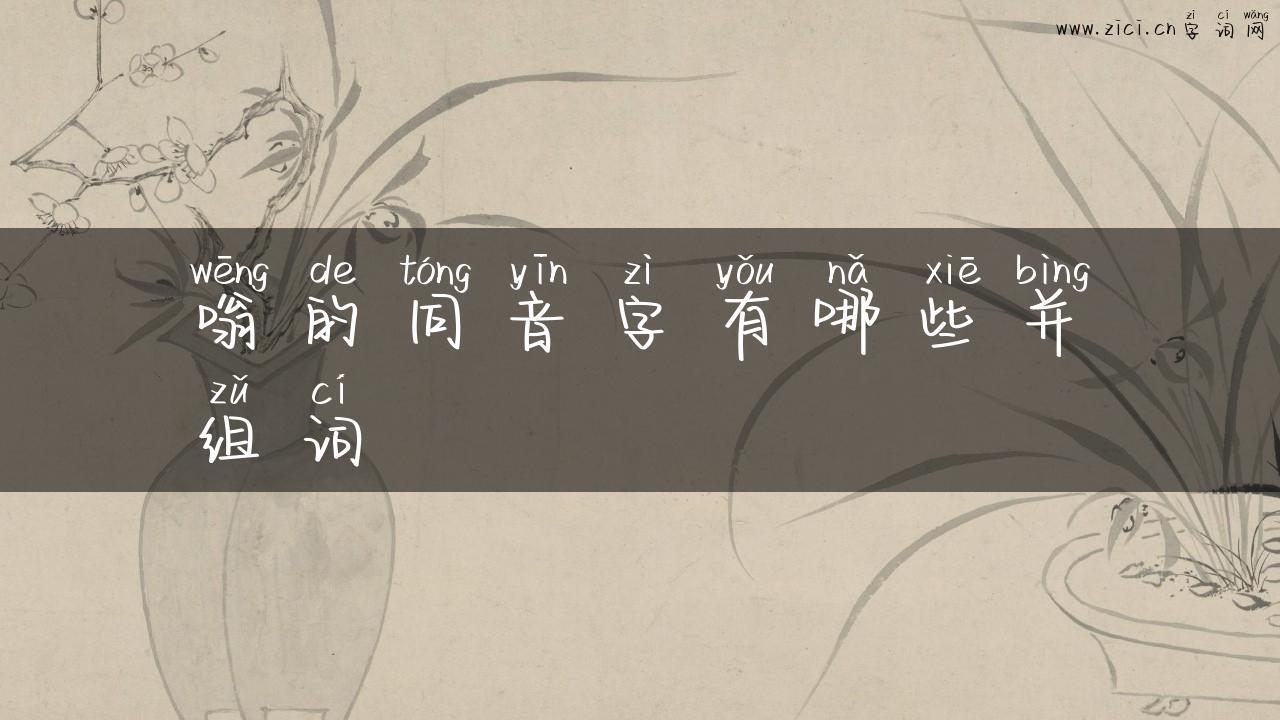 zì cí wǎng
www.zici.cn 字词网
wēng de tóng yīn zì yǒu nǎ xiē bìng
嗡的同音字有哪些并
zǔ cí
组词